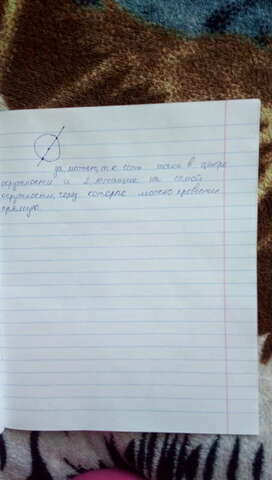 да может, т.к есть точка в центре
окружности и 2 лежащие на самой
окружности, через которые можно провести
прямую.